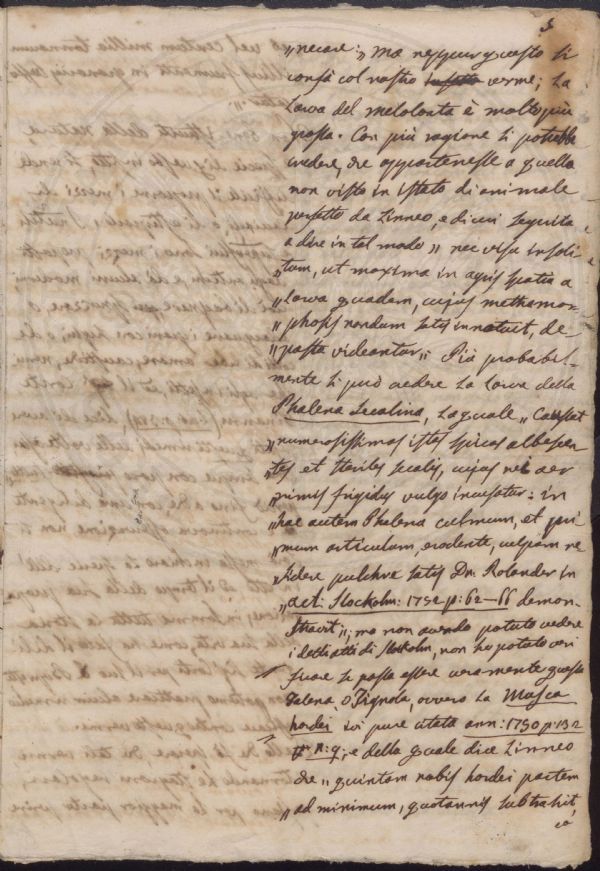 5
„necare:„ ma neppur questo si
confà col nostro verme; La
Larva del melolonta è molto più
grossa. Con più ragione si potrebbe
credere, che appartenesse a quella
non vista in istato di animale
perfetto da Linneo, e di cui seguita
a dire in tal modo „ nec visu insoli-
„tum, ut maxima in agris spatia a
„larva quadam, cujus methamor-
„phosis nondum satis innotuit, de-
„pasta videantur„ Più probabil-
mente si può credere la larva della
Phalena Secalina, la quale „
„numerosissimas istas spicas albescen-
„tes et steriles secalis, cujus rei aer
„nimis frigidus vulgo incusatur: in
„hac autem Phalena culmum, et pri-
„mum articulum, erodente, culpam re-
„sidere pulchre satis Dn. Rolander in
„act: Stockolm: 1752 p: 62–66 demon-
„stravit„; ma non avendo potuto vedere
i detti atti di Stokolm, non ho potuto veri
ficare se possa essere veramente questa
Falena, o Tignola, ovvero la Musca
hordei ivi pure citata ann: 1750 p: 132
n: 9; e della quale dice Linneo
che „ quintam nobis hordei partem
„ad minimum, quotannis subtrahit,